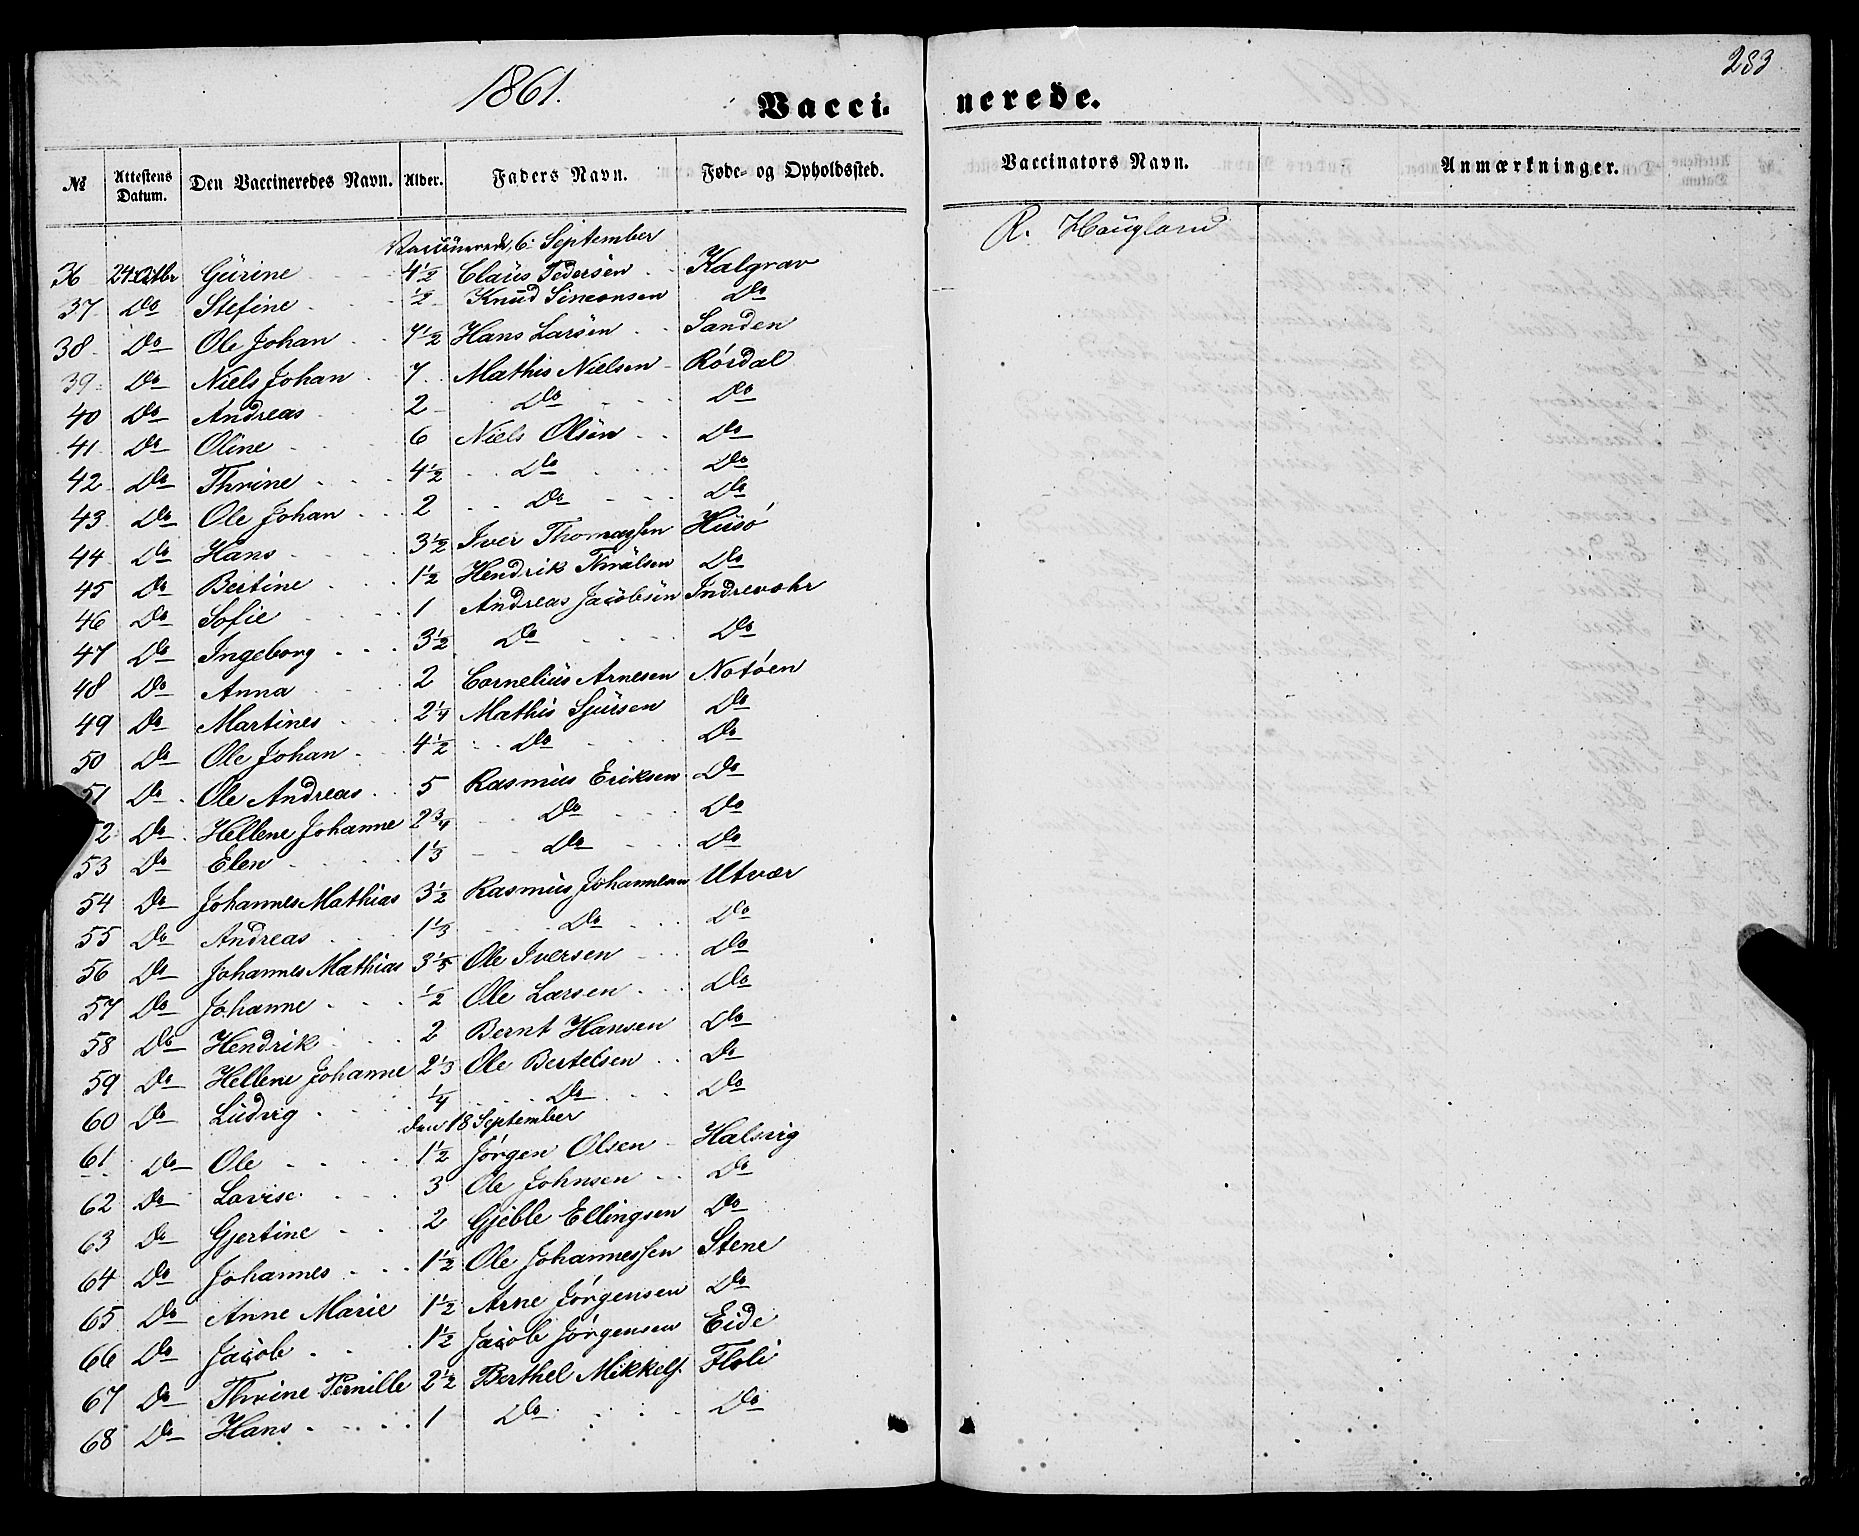 283
1861.
Vacci- nerede.
№ Attestens Datum. Den Vaccineredes Navn. Alder. Faders Navn. Føde- og Opholdssted. Vaccinators Navn. Anmærkninger.
Vaccinerede, 6. September R. Haugland
36 24 Octbr Gurine 4½ Claus Pedersen Kalgrav
37 Do Stefine ½ Knud Simonsen Do
38 Do Ole Johan 7½ Hans Larsen Sanden
39 Do Niels Johan 7 Mathis Nielsen Rördal
40 Do Andreas 2 Do Do
41 Do Oline 6 Niels Olsen Do
42 Do Thrine 4½ Do Do
43 Do Ole Johan 2 Do Do
44 Do Hans 3½ Iver Thomassen Husö
45 Do Bertine 1½ Hendrik Do
46 Do Sofie 1 Andreas Jacobsen Indrevær
47 Do Ingeborg 3½ Do Do
48 Do Anna 2 Cornelius Arnesen Notöen
49 Do Martines 2¼ Mathis Sjursen Do
50 Do Ole Johan 4½ Do Do
51 Do Ole Andreas 5 Rasmus Eriksen Do
52 Do Hellene Johanne 2¾ Do Do
53 Do Elen 1⅓ Do Do
54 Do Johannes Mathias 3½ Rasmus Johannesen Utvær
55 Do Andreas 1⅓ Do Do
56 Do Johannes Mathias 3⅓ Ole Iversen Do
57 Do Johanne ½ Ole Larsen Do
58 Do Hendrik 2 Bernt Hansen Do
59 Do Hellene Johanne 2⅓ Ole Bertelsen Do
60 Do Ludvig ¼ Do Do
den 18 September
61 Do Ole 1½ Jörgen Olsen Halsvig
62 Do Lovise 3 Ole Johnsen Do
63 Do Gjertine 2 Gjeble Ellingsen Do
64 Do Johannes 1½ Ole Johannessen Stene
65 Do Anne Marie 1½ Arne Jörgensen Do
66 Do Jacob 1½ Jacob Jörgensen Eide
67 Do Thrine Pernille 2½ Berthel Mikkels. Floli
68 Do Hans 1 Do Do